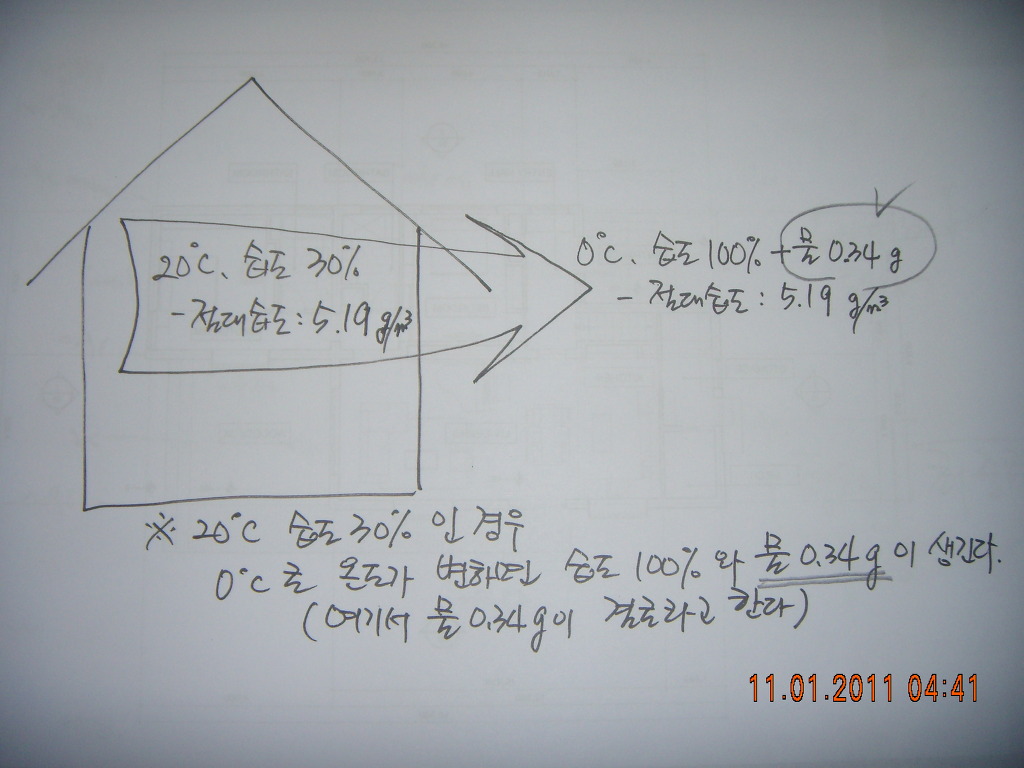 20℃、습도 30%
- 절대습도 : 5.19 g/m³
0℃、습도 100% + 물 0.34 g
- 절대습도 : 5.19 g/m³
※ 20℃ 습도 30% 인 경우
0℃로 온도가 변하면 습도 100% 와 물 0.34 g 이 생긴다.
(여기서 물 0.34 g 이 결로라고 한다)
11.01.2011 04:41